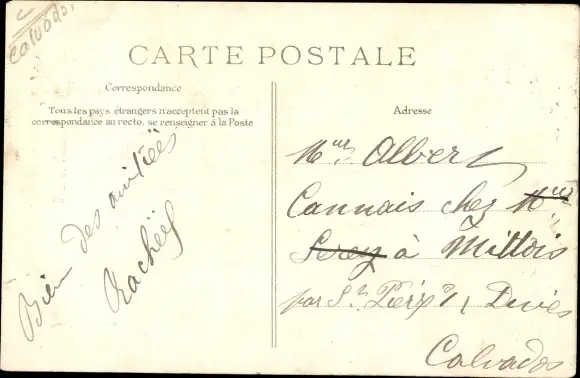 Calvados
CARTE POSTALE
Correspondance
Tous les pays étrangers n'acceptent pas la
correspondance au recto, se renseigner à la Poste
Adresse
Bien des amitiées
Rachëel
Meur Albert
Cannais chez Meur
Serey à Mittois
par St Pierre s/ Dives
Calvados